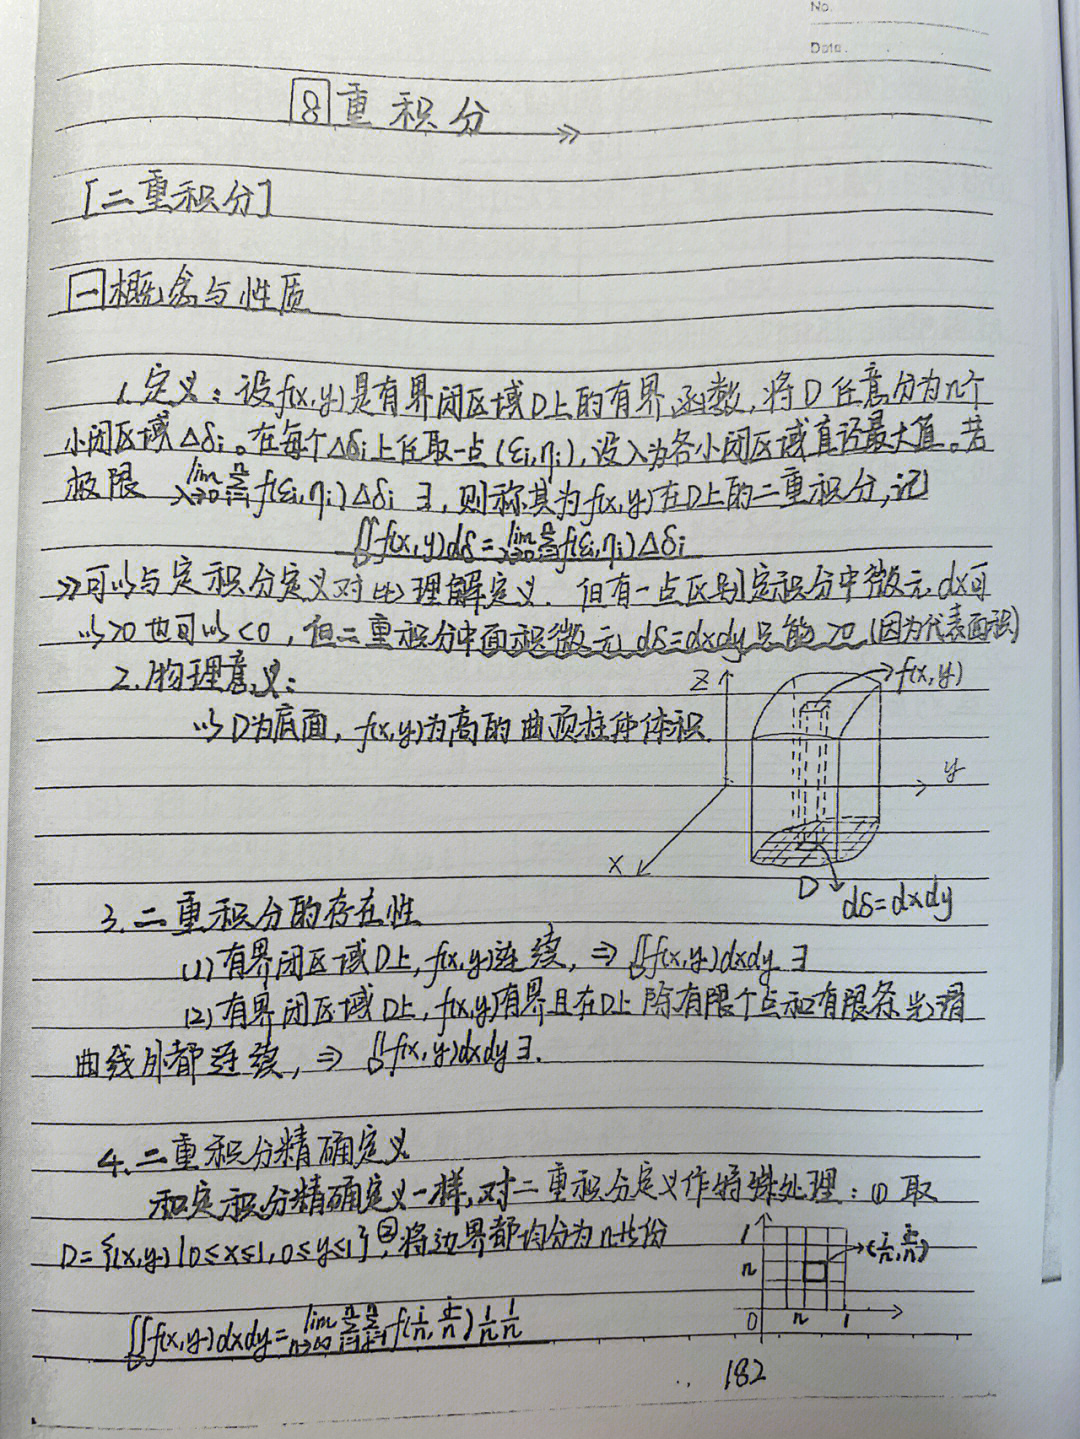 No.
Date.
8 重积分 >>
[二重积分]
一 概念与性质
1. 定义：设f(x,y)是有界闭区域D上的有界函数，将D任意分为n个
小闭区域Δδi。在每个Δδi上任取一点(ξi,ηi)，设λ为各小闭区域直径最大值。若
极限 lim λ→0 Σ i=1 n f(ξi,ηi)Δδi ∃，则称其为f(x,y)在D上的二重积分，记
∬D f(x,y)dδ = lim λ→0 Σ i=1 n f(ξi,ηi)Δδi
>>可以与定积分定义对比理解定义. 但有一点区别定积分中微元dx可
以>0也可以<0，但二重积分中面积微元dδ=dxdy只能>0 (因为代表面积)
2. 物理意义：
以D为底面，f(x,y)为高的曲顶柱体体积.
z
f(x,y)
y
x
D
dδ=dxdy
3. 二重积分的存在性
(1) 有界闭区域D上，f(x,y)连续，⇒ ∬D f(x,y)dxdy ∃
(2) 有界闭区域D上，f(x,y)有界且在D上除有限个点和有限条光滑
曲线外都连续，⇒ ∬D f(x,y)dxdy ∃.
4. 二重积分精确定义
和定积分精确定义一样，对二重积分定义作特殊处理：① 取
D={(x,y)|0≤x≤1,0≤y≤1} ②，将边界都均分为n等份
1
n
(i/n, j/n)
0 n 1
∬D f(x,y)dxdy = lim n→∞ Σ i=1 n Σ j=1 n f(i/n, j/n) 1/n 1/n
182